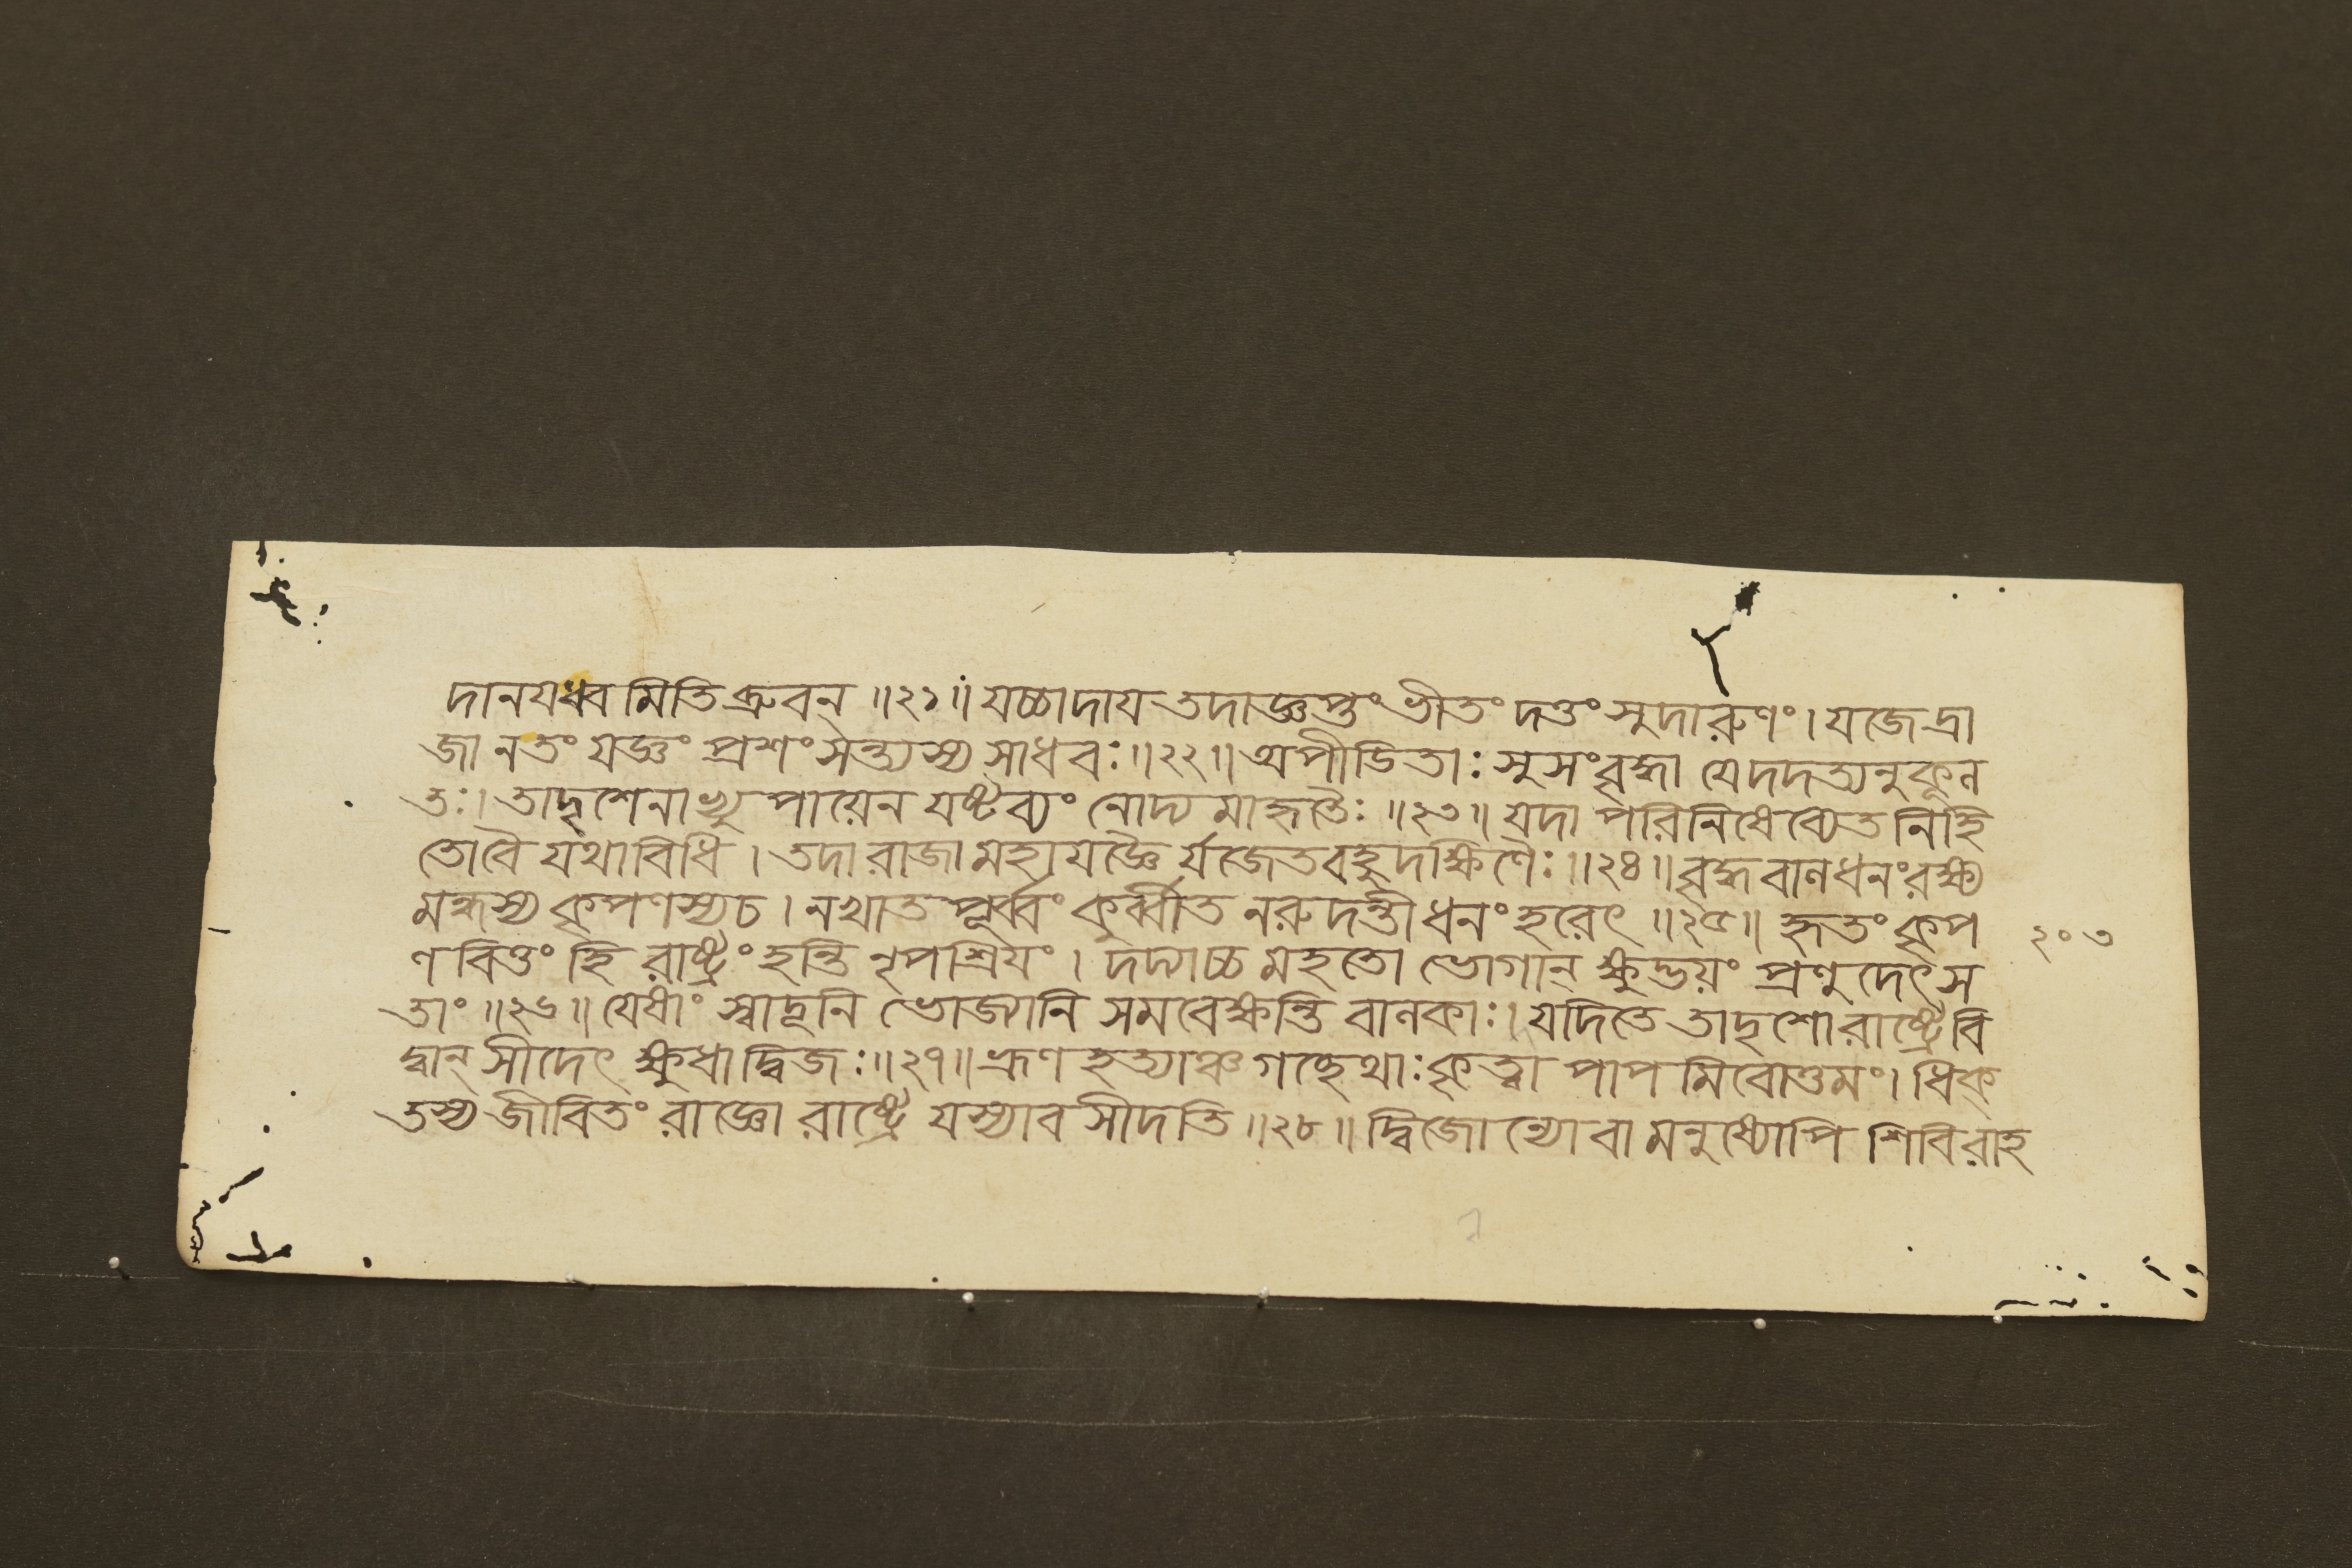 দানযধ্বমিতি ব্রুবন্ ॥২১॥ যচ্চাদায তদাজ্ঞপ্তং ভীতং দত্তং সুদারুণং। যজেদ্রা
জা নতং যজ্ঞং প্রশংসন্ত্যস্য সাধবঃ॥২২॥ অপীডিতাঃ সুসংবৃদ্ধা যেদদত্যনুকূল
তঃ। তাদৃশেনাভ্যুপায়েন যষ্টব্যং নোদ্য মাহৃতৈঃ ॥২৩॥ যদা পরিনিষেব্যেত নিহি
তোবৈ যথাবিধি । তদা রাজা মহাযজ্ঞৈ র্যজেতবহুদক্ষিণৈঃ॥২৪॥ বৃদ্ধবালধনংরক্ষ্য
মন্ধস্য কৃপণস্যচ । নখাত পূর্ব্বং কুর্ব্বীত নরুদন্তী ধনং হরেৎ ॥২৫॥ হৃতং কৃপ
ণবিত্তং হি রাষ্ট্রং হন্তি নৃপশ্রিযং। দদ্যাচ্চ মহতো ভোগান্ ক্ষুদ্ভয়ং প্রণুদেৎস
তাং ॥২৬॥ যেষাং স্বাদূনি ভোজ্যানি সমবেক্ষন্তি বালকাঃ। যদিতে তাদৃশো রাষ্ট্রে বি
দ্বান্ সীদেৎ ক্ষুধা দ্বিজঃ॥২৭॥ ভ্রূণহত্যাঞ্চ গচ্ছেথাঃ কৃত্বা পাপ মিবোত্তমং। ধিক্
তস্য জীবিতং রাজ্ঞো রাষ্ট্রে যস্যাবসীদতি॥২৮॥ দ্বিজোন্যোবা মনুষ্যোপি শিবিরাহ
২০৩